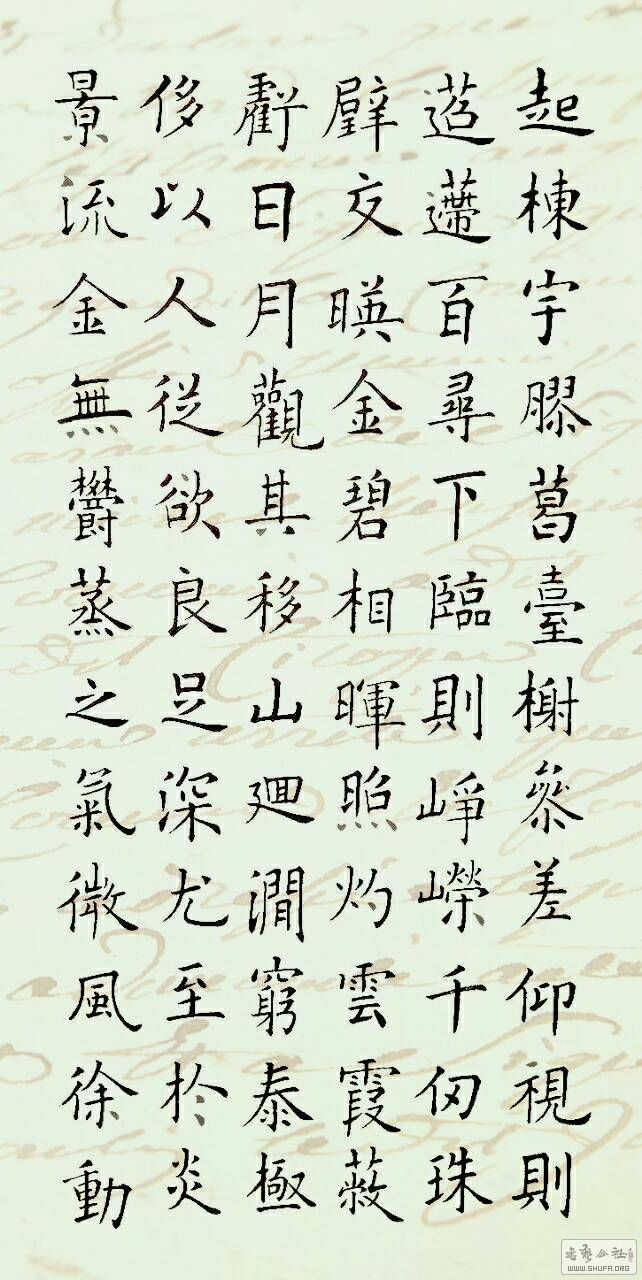 起棟宇膠葛臺榭叅差仰視則
迢遰百尋下臨則崢嶸千仞珠
壁交暎金碧相暉照灼雲霞蔽
虧日月觀其移山廻澗窮泰極
侈以人從欲良足深尤至於炎
景流金無欝蒸之氣微風徐動
WWW.SHUFA.ORG